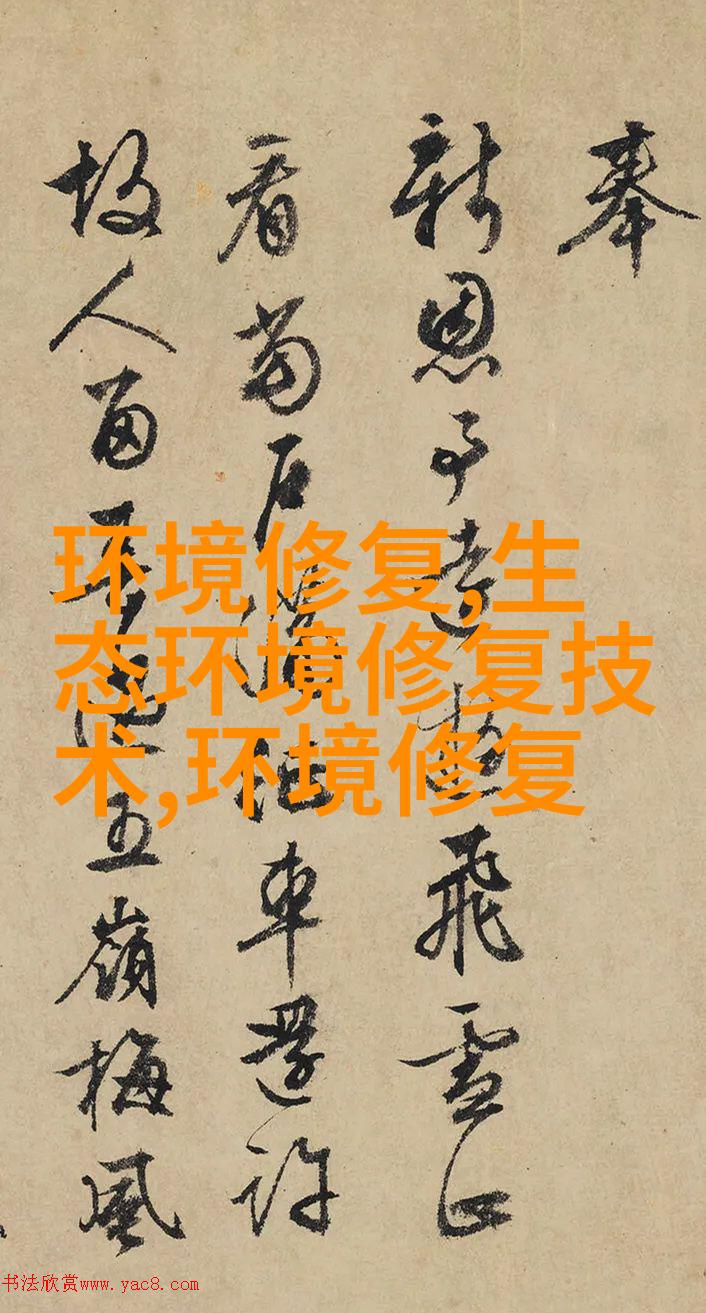 奉
新恩事飛雪正
看當石車還許
故人留五嶺梅風
环境修复,生
态环境修复技
术,环境修复
书法欣赏www.yac8.com